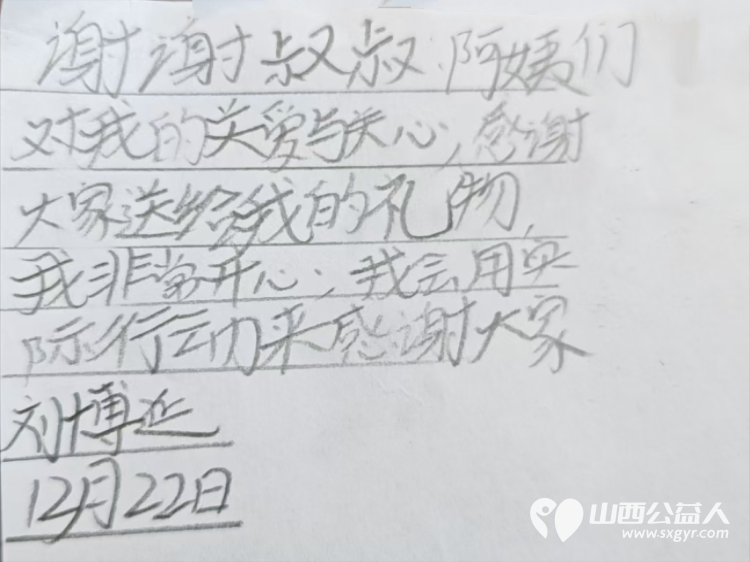 谢谢叔叔阿姨们
对我的关爱与关心，感谢
大家送给我的礼物，
我非常开心，我会用实
际行动来感谢大家
刘博延
12月22日
山西公益人
www.sxgyr.com